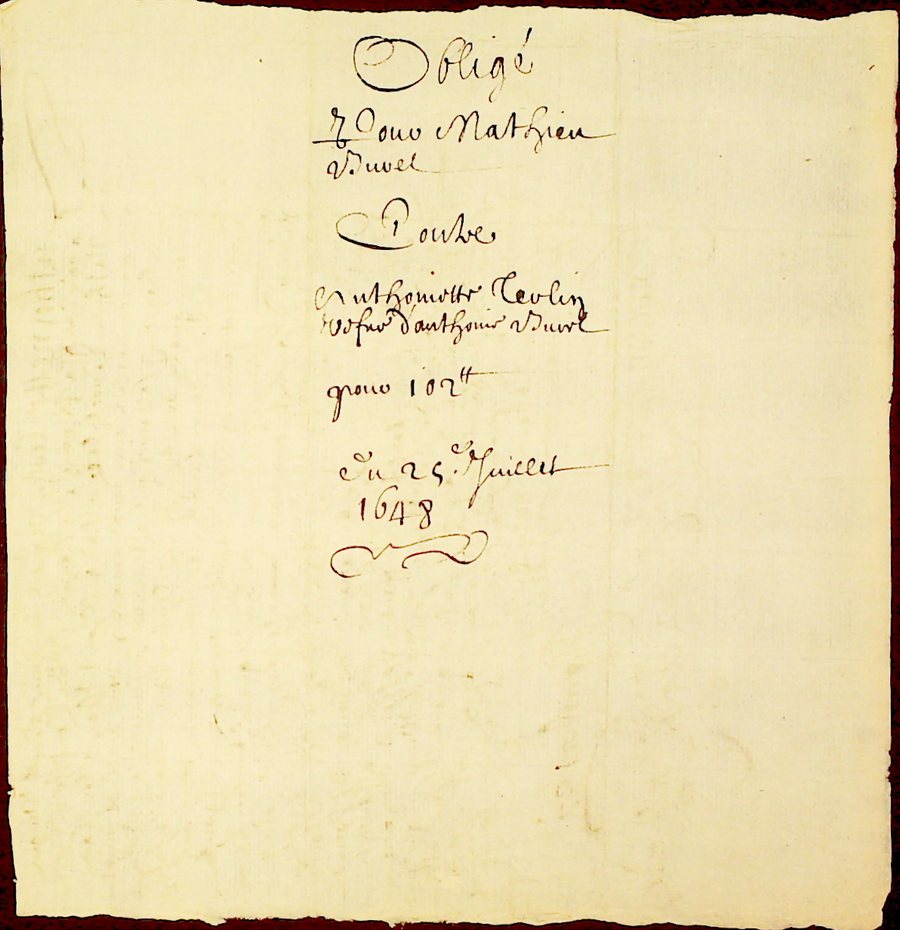 Obligé
Pour Mathieu
Buvel
Contre
Anthoinette Terlin
vefve d'anthoine Buvel
pour 102tt
Du 25e Juillet
1648